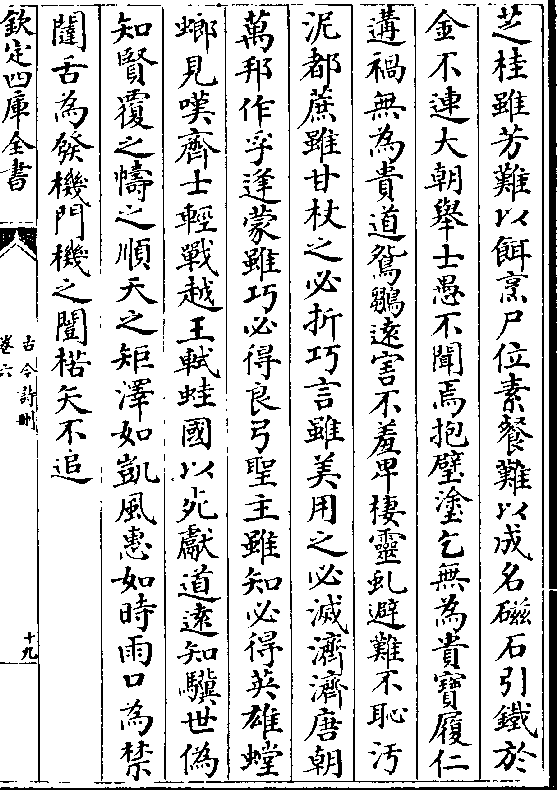 芝桂雖芳難以餌烹尸位素餐難以成名磁石引鐵於
金不連大朝舉士愚不聞焉抱璧塗乞無為貴寶履仁
遘禍無為貴道鴛鶵遠害不羞卑棲靈虬避難不恥汚
泥都蔗雖甘杖之必折巧言雖美用之必滅濟濟唐朝
萬邦作孚逢蒙雖巧必得良弓聖主雖知必得英雄螳
螂見嘆齊士輕戰越王軾蛙國以死獻道遠知驥世偽
知賢覆之幬之順天之矩澤如凱風惠如時雨口為禁
闥舌為發機門機之闓楛矢不追
欽定四庫全書
古今詩刪
卷六
十九